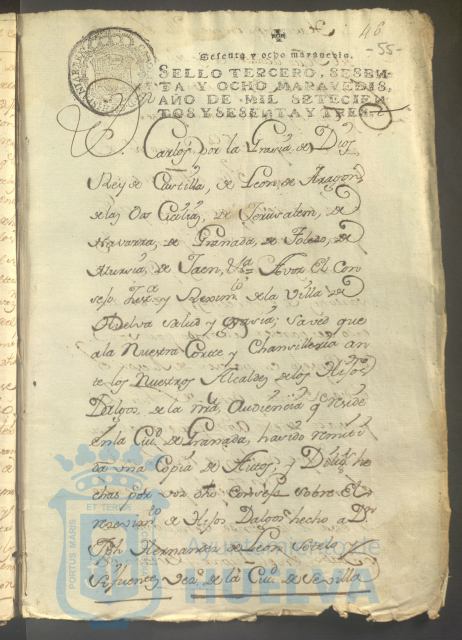 46
-55-
Sesenta y ocho maravedis.
SELLO TERCERO, SESEN-
TA Y OCHO MARAVEDIS,
AÑO DE MIL SETECIEN-
TOS Y SESENTA Y TRES.
D. Carlos por la Gracia de Dios
Rey de Castilla, de Leon, de Aragon,
de las dos Cicilias, de Jerusalem, de
Navarra, de Granada, de Toledo, de
Murcia, de Jaen, &a A vos El Con
sejo Justa y Reximto de la Villa de
Huelva salud y gracia; saved que
a la Nuestra Corte y Chancilleria an
te los Nuestros Alcaldes de los Hijos
Dalgos de la nra Audiencia q reside
en la Ciud de Granada, havido remiti
da una Copia de Autos, y Dilixs he
chas por vos dho Consejo sobre El
recivimto de Hijos Dalgos hecho a Dn
Jph Hernandez de Leon Sotelo y
Sifuentes veco de la Ciud de Sevilla
PORTUS MARIS
ET TERRE
Ayuntamiento de
HUELVA